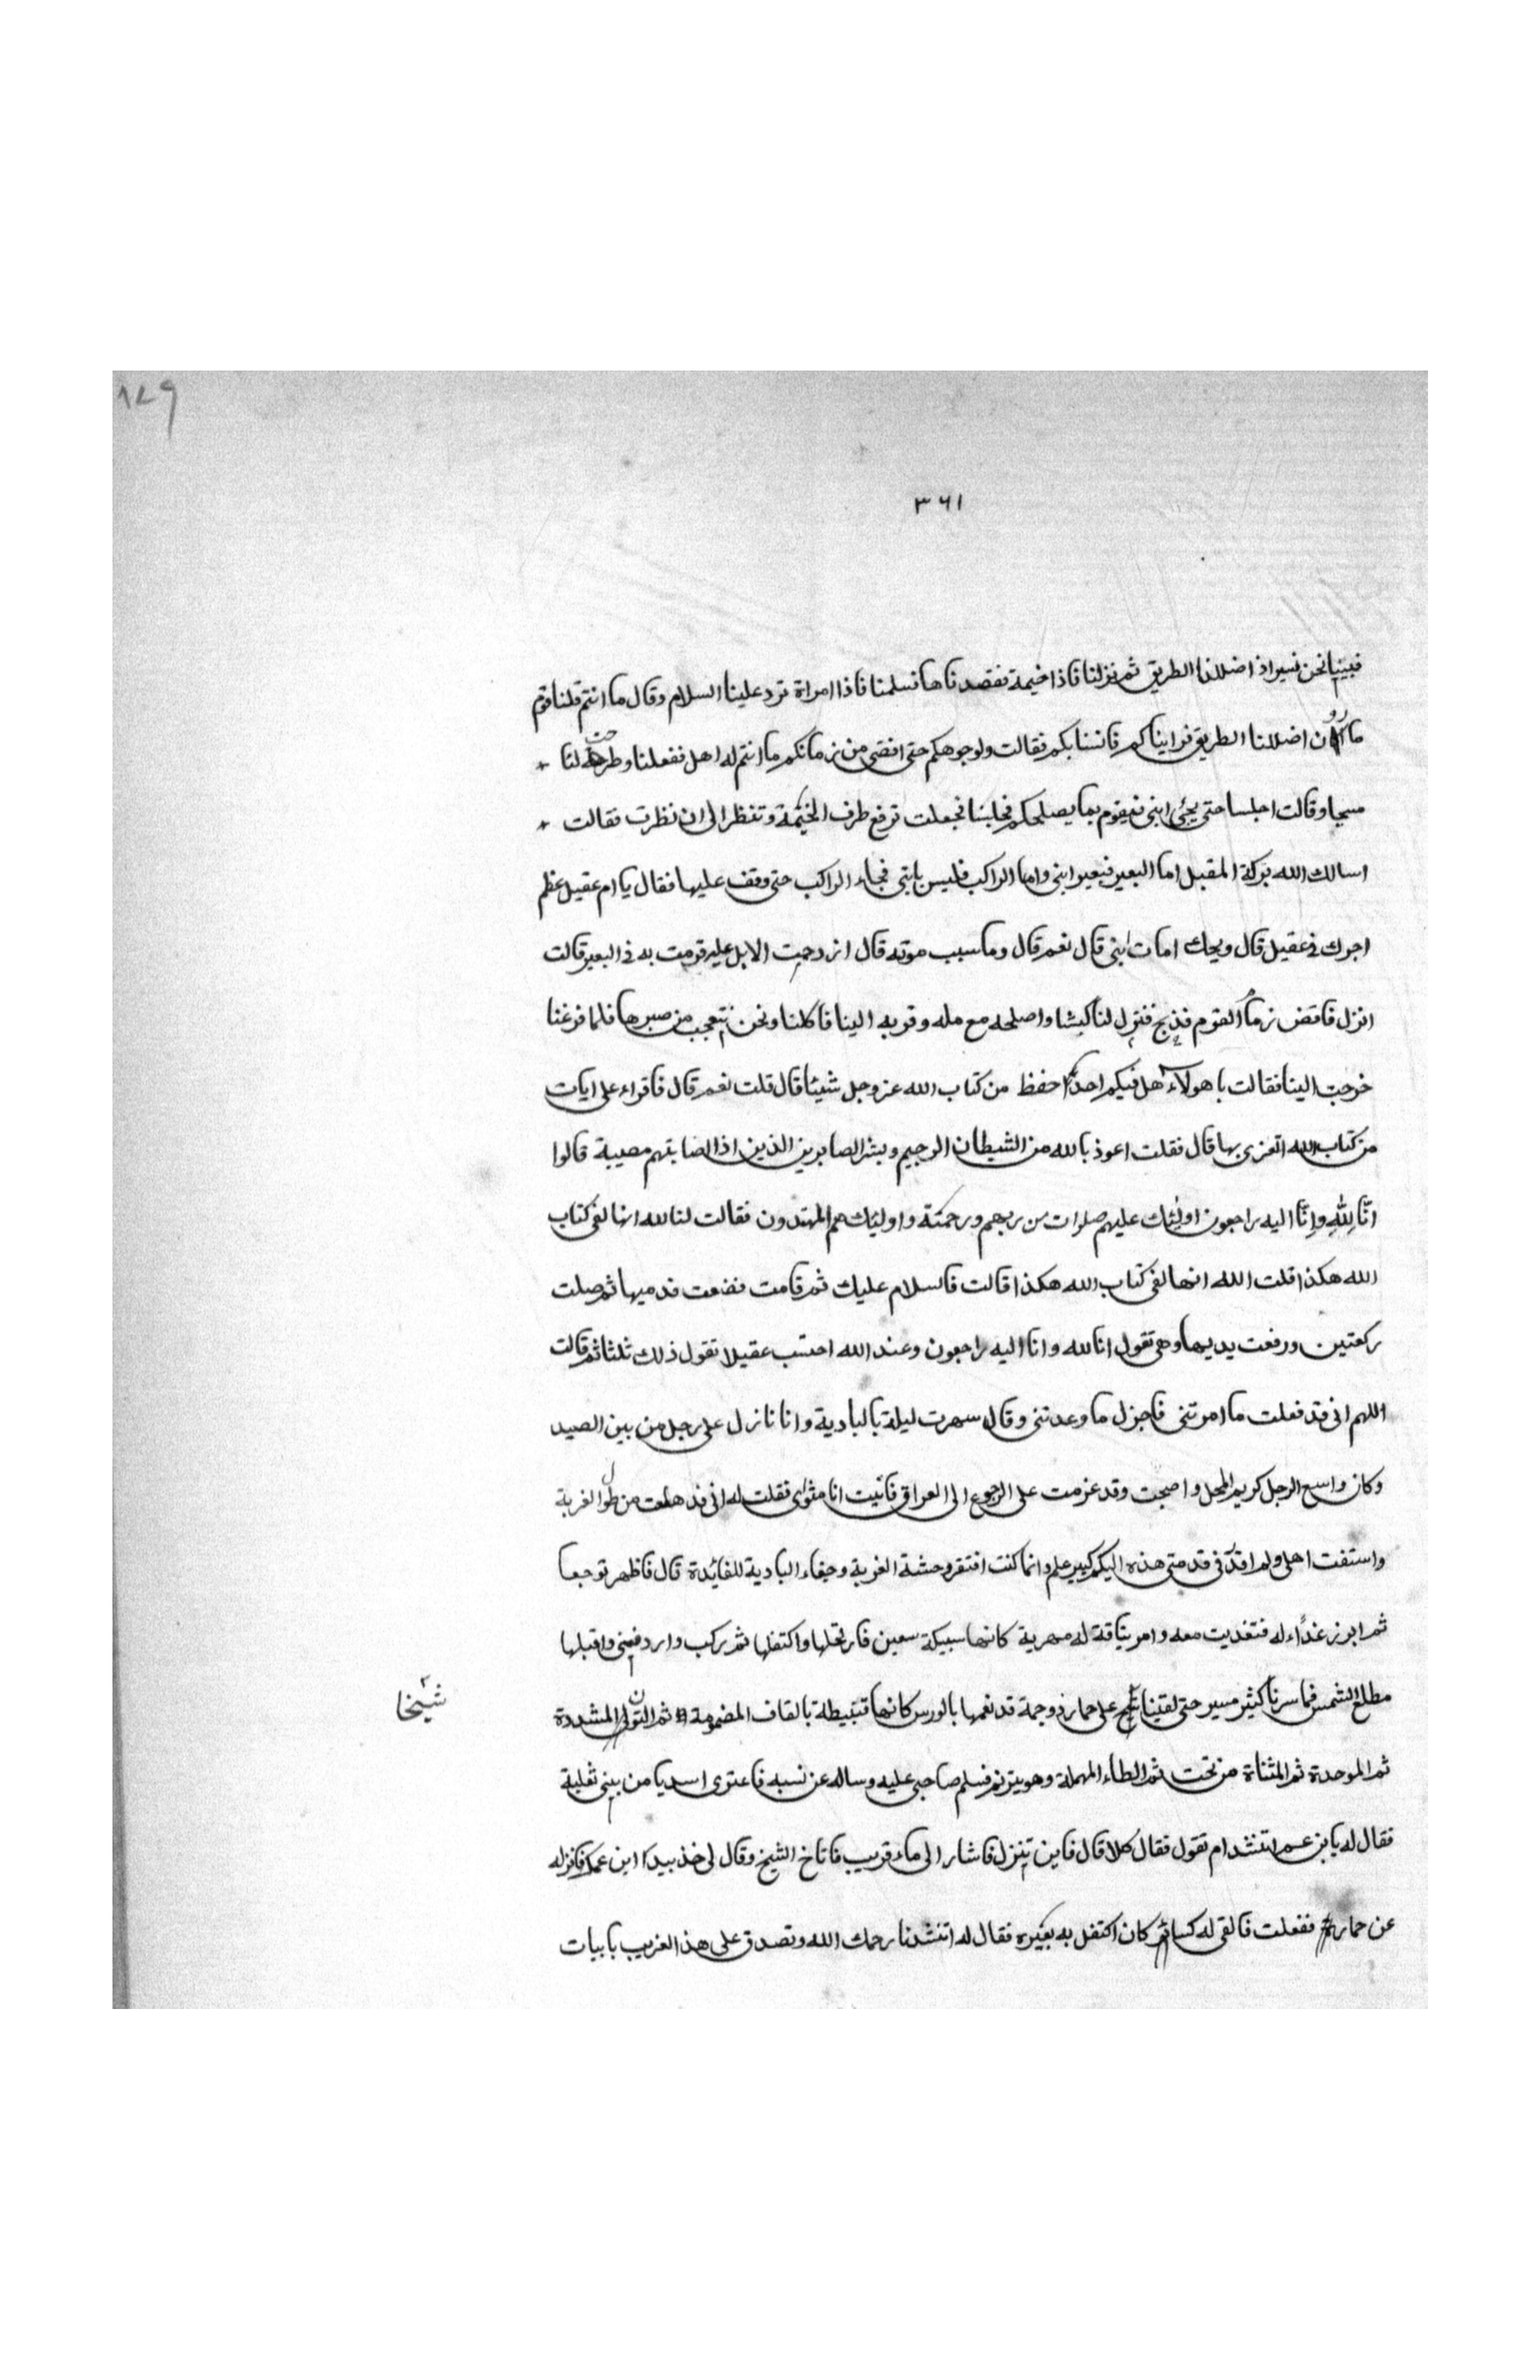 ١٤٩
٣٦١
فبينا نحن نسير اذ اضللنا الطريق ثم نزلنا فاذا خيمة فقصدناها فسلمنا فاذا امراة ترد علينا السلام وقال ما انتم قلنا قوم
مارون اضللنا الطريق فراينا كم فانسنا بكم فقالت ولوجوهكم حتى اقضى من زمانكم ما انتم له اهل ففعلنا وطرحت لنا
مسحا وقالت اجلسا حتى يجئ ابنى فيقوم بما يصلحكم فجلسنا فجعلت ترفع طرف الخيمة وتنظر الى ان نظرت فقالت
اسالك الله بركة المقبل اما البعير فبعير ابنى واما الراكب فليس بابنى فجاء الراكب حتى وقف عليها فقال يا ام عقيل عظم
اجرك فى عقيل قال ويحك امات ابنى قال نعم قال وما سبب موته قال ازدحمت الابل عليه فرمت به فى البعير قالت
انزل فاقض زما القوم فذبح فنزل لنا كبشا واصلحه مع مله وقربه الينا فاكلنا ونحن نتعجب من صبرها فلما فرغنا
خرجت الينا فقالت يا هولاء هل فيكم احد احفظ من كتاب الله عز وجل شيئا قال قلت نعم قال فاقراء على ايات
من كتاب الله اتعزى بها قال فقلت اعوذ بالله من الشيطان الرجيم وبشر الصابرين الذين اذا اصابتهم مصيبة قالوا
انّا لِلّٰهِ وانّا اليه راجعون اولئك عليهم صلوات من ربهم ورحمته واولئك هم المهتدون فقالت لنا لله انها لفى كتاب
الله هكذا قلت الله انها لفى كتاب الله هكذا قالت فالسلام عليك ثم قامت فضمت قدميها ثم صلت
ركعتين ورفعت يديها وهى تقول انا لله وانا اليه راجعون وعند الله احتسب عقيلا تقول ذلك ثلثا ثم قالت
اللهم انى قد فعلت ما امرتنى فاجزل ما وعدتنى وقال سهرت ليلة بالبادية وانا نازل على رجل من بين الصيد
وكان واسع الرجل كريم المحل واصبحت وقد عزمت على الرجوع الى العراق فاتيت انا مثواى فقلت له انى قد هلعت من طول الغربة
واستفت اهلى ولم افد فى قدمتى هذه اليكم كبير علم وانما كنت افتقر وحشة الغربة وجفاء البادية للفائدة قال فاظهر توجعا
ثم ابرز غذاء له فتغذيت معه وامر بناقة له مهرية كانها سبيكة سعين فارتحلها واكتفلها ثم ركب واردفنى واقبلها
مطلع الشمس فما سرنا كثير مسير حتى لقينا شيخ على حمار ذو جمة قد نعمها بالورس كانها قنبيطة بالقاف المضمومة ثم النون المشددة
شيخا
ثم الموحدة ثم المثناة من تحت ثم الطاء المهملة وهو يترنم فسلم صاحبى عليه وساله عن نسبه فاعتوى اسديا من بنى ثعلبة
فقال له يا بن عم اتنشد ام تقول فقال كلا قال فاين تنزل فاشار الى ماء قريب فاناخ الشيخ وقال لى خذ بيدا ابن عمك فانزله
عن حماره ففعلت فالقى له كسائم كان اكتفل به بعيره فقال له اتنشدنا رحمك الله وتصدق على هذا الغريب بابيات